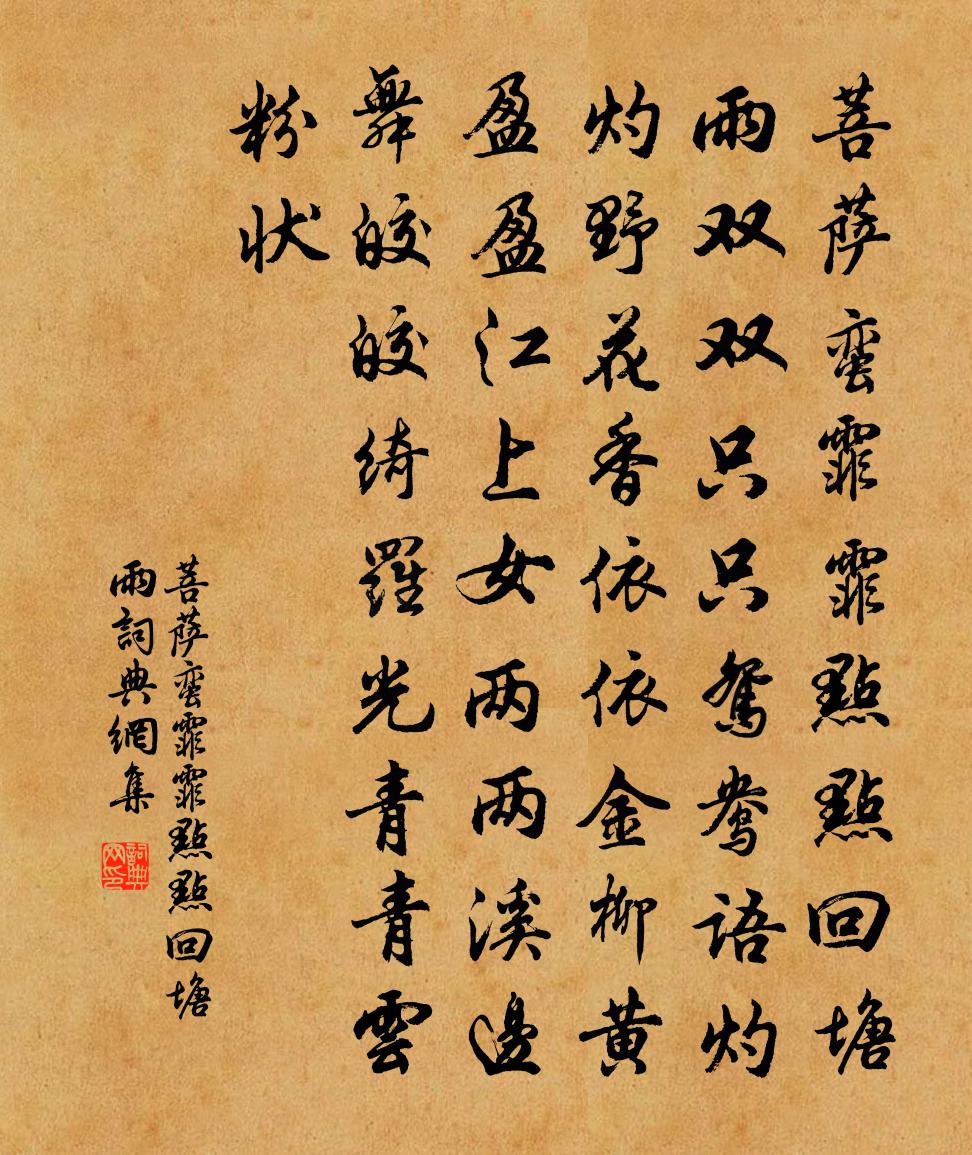 菩萨蛮霏霏點點回塘
雨双双只只鸳鸯語灼
灼野花香依依金柳黄
盈盈江上女两两溪邊
舞皎皎绮羅光青青雲
粉状
菩萨蛮霏霏點點回塘
雨詞典網集
詞典网印